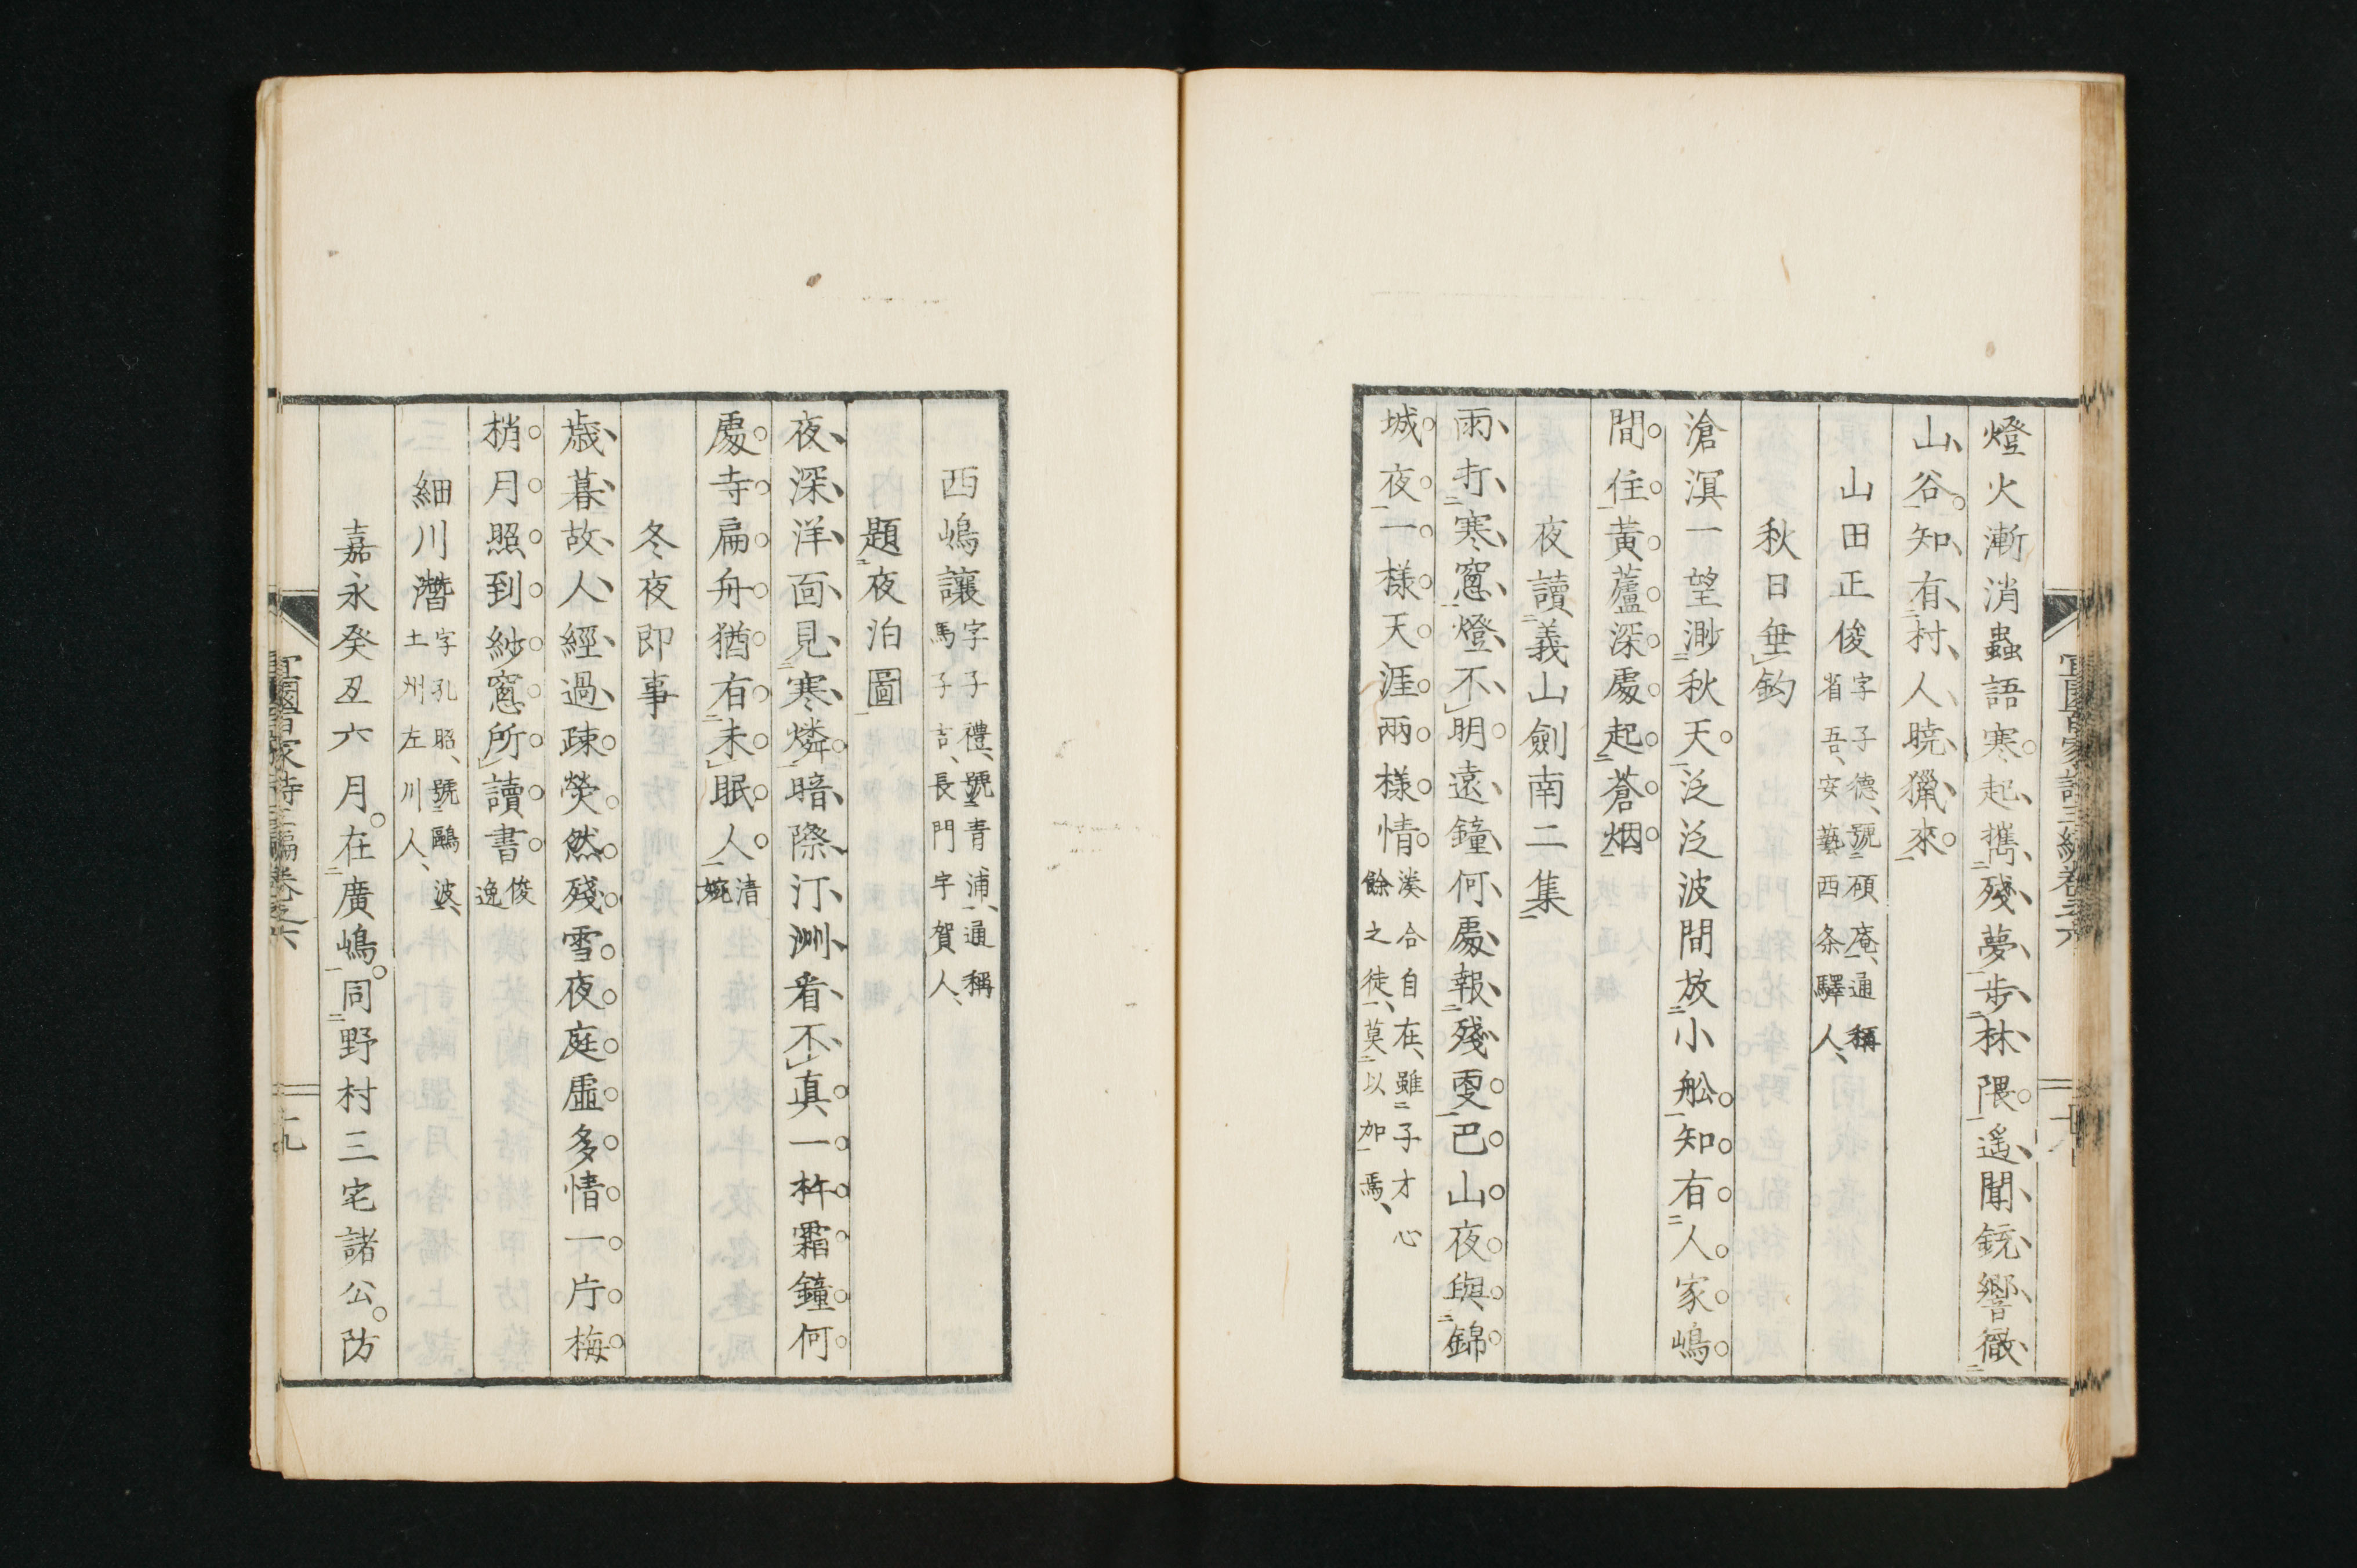 燈火漸消蟲語寒起攜殘夢步林隈遙聞銃響徹
山谷知有村人曉獵來
山田正俊字子德、號碩庵、通稱
省吾、安藝西条驛人、
秋日垂釣
滄溟一望渺秋天泛泛波間放小舩知有人家嶋
間住黃蘆深處起蒼烟
夜讀義山劍南二集
雨打寒窻燈不明遠鐘何處報殘更巴山夜與錦
城夜一樣天涯兩樣情湊合自在、雖子才心
餘之徒、莫以加焉、
西嶋讓字子禮、號青浦、通稱
馬子吉、長門宇賀人、
題夜泊圖
夜深洋面見寒燐暗際汀洲看不真一杵霜鐘何
處寺扁舟猶有未眠人清
婉
冬夜即事
歲暮故人經過疎熒然殘雪夜庭虛多情一片梅
梢月照到紗窻所讀書俊
逸
細川潛字孔昭、號鷗波、
土州左川人、
嘉永癸丑六月。在廣嶋。同野村三宅諸公。防